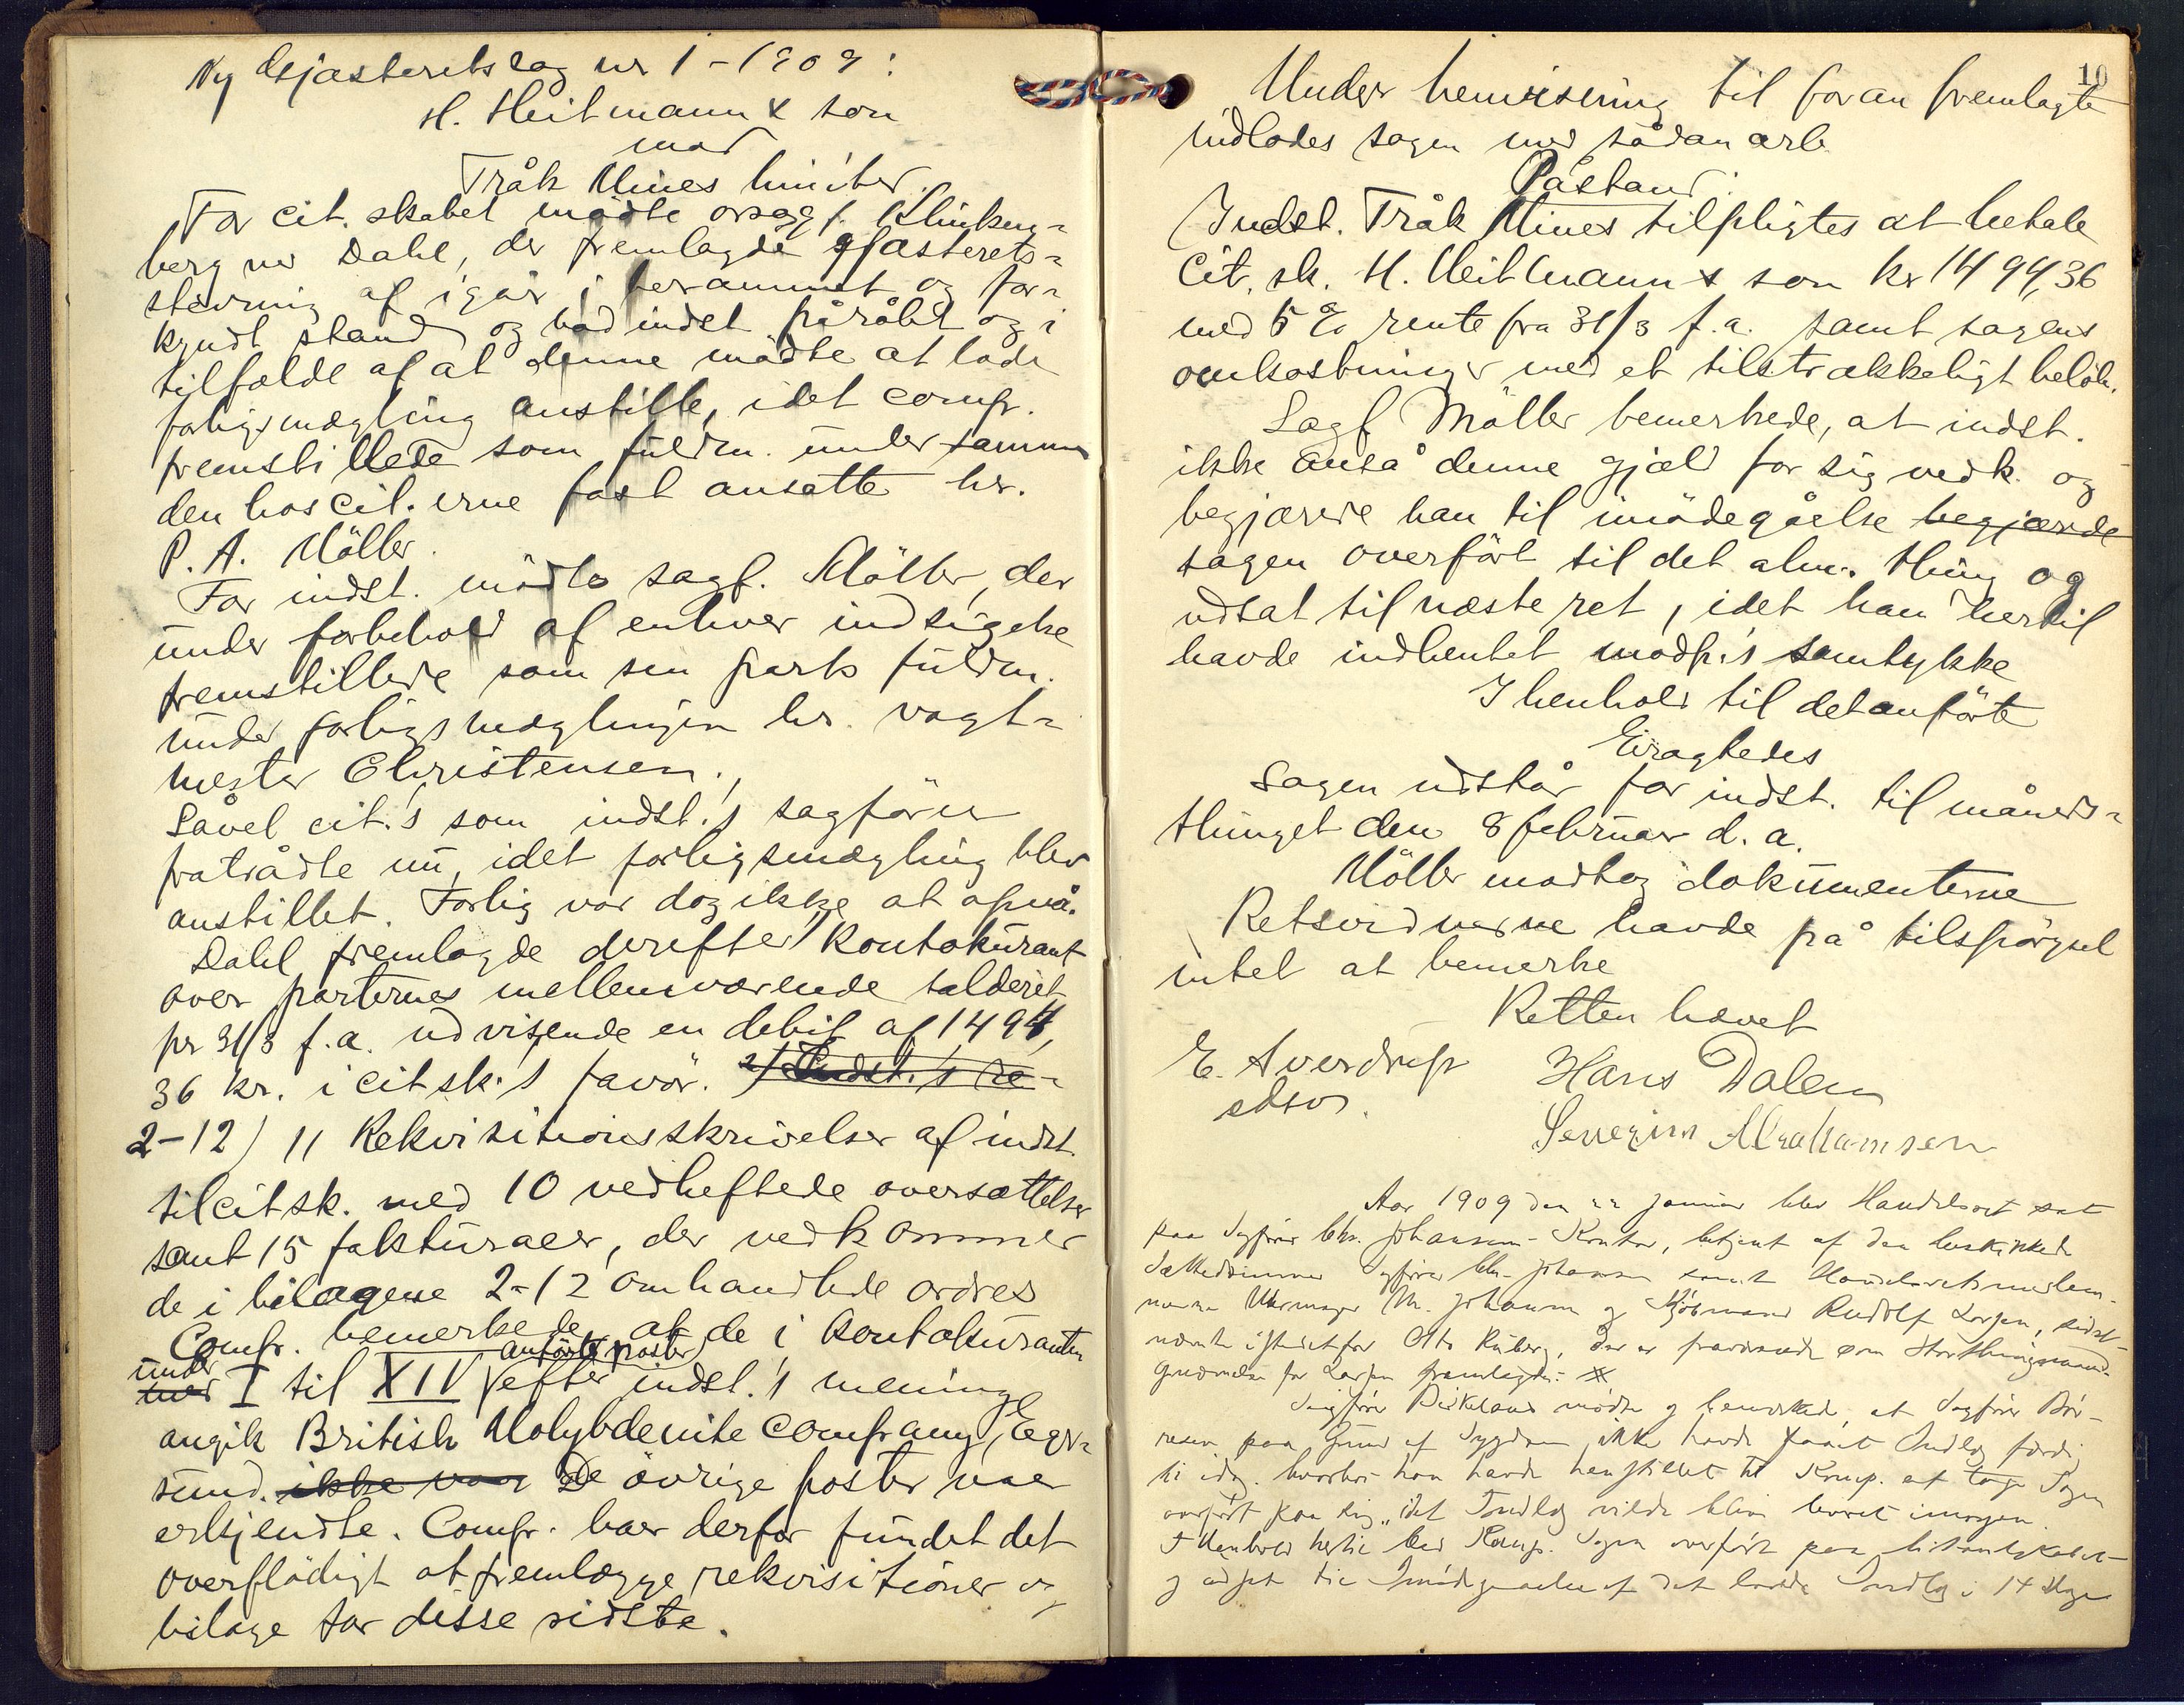 Ny Gjæsteretssag nr 1 - 1909:
H. Heitmann & søn
mod
Tråk Mines limiter
For cit. skabet mödte orsagf. Klinken-
berg ver Dahl, der fremlagde gjæsterets-
stævning af igår i berammet og for-
kyndt stand og bad indst. påråbt og i
tilfælde af at denne mödte at lade
forligsmægling anstille, idet comp.
fremstillede som fuldm. under samme
den hos cit. erne fast ansatte hr.
P. A. Möller.
For indst. mödte sagf. Möller, der
under forbehold af enhver indsigelse
fremstillede som sin parts fuldm.
under forligsmæglingen hr. vagt-
mester Christensen.
Såvel cit.'s som indst.'s sagförer
fratrådte nu, idet forligsmægling blev
anstillet. Forlig var dog ikke at opnå.
Dahl fremlagde derefter kontokurant
over parternes mellemværende salderet
pr 31/3 f.a. udvisende en debit af 1494,
36 kr. i citsk.'s favör. 2) Indst.'s re-
2-12) 11 Rekvisitionsskrivelser af indst.
til citsk. med 10 vedheftede oversættelser
samt 15 fakturaer, der vedkommer
de i bilagene 2-12 omhandlede ordres
Comp. bemerkede, at de i kontokuranten
under anførte poster
med I til XIV efter indst.'s mening
angik British Molybdenite Company, Eger-
sund. ikke var De övrige poster var
erkjendte. Comp. har derfor fundet det
overflödigt at fremlægge rekvisitioner og
bilage for disse sidste.
10
Under henvisning til foran fremlagte
indlodes sagen med sådan ærb.
Påstand:
Indst. Tråk Mines tilpligtes at betale
Cit. sk. H. Heitmann & søn kr 1494,36
med 5 % rente fra 31/3 f.a. samt sagens
omkostninger med et tilstrækkeligt belöb.
Sagf. Möller bemerkede, at indst.
ikke anså denne gjæld for sig vedk. og
begjærede han til imödegåelse begjærede
sagen overfört til det alm. thing og
udsat til næste ret, idet han hertil
havde indhentet modp.'s samtykke
I henhold til det anförte
Eragtedes
Sagen udstår for indst. til måneds-
thinget den 8 februar d. a.
Möller modtog dokumenterne
Retsvidnerne havde på tilspörgsel
intet at bemerke
Retten hævet
E. Sverdrup
edsv.
Hans Dalen
Severin Abrahamsen
Aar 1909 den 22 januar blev Handelsret sat
paa Sagförer Chr. Johansens Kontor, betjent af den beskikkede
Sættedommer Sagförer Chr. Johansen samt Handelsretsmedlem-
merne Uhrmager M. Johansen og Kjöbmand Rudolf Larsen, sidst-
nævnte istedetfor Otto Ruberg, der er fraværende som Storthingsmand.
for Larsen fremlagdes. X
Sagförer Birkeland mödte og bemerkede, at Sagförer Bör-
resen paa Grund af Sygdom ikke havde faaet Indlæg færdig
til idag, hvorfor han havde henstillet til Komp. at tage Sagen
overfört paa sig, idet Indlæg vilde blive leveret imorgen.
I Henhold hertil bad Komp. Sagen overfört paa
og udsat til Imödegaaelse af det Indlæg i 14 Dage